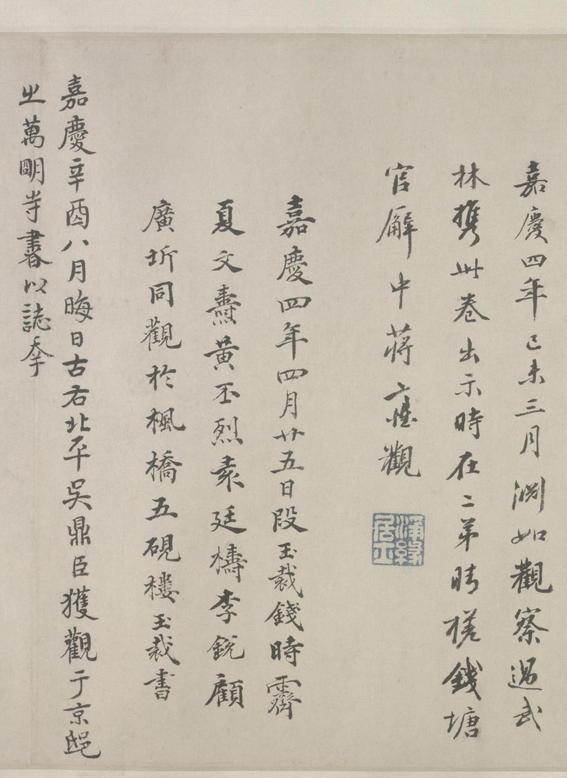 嘉慶四年己未三月淵如觀察過武
林攜此卷出示時在二弟時槎錢塘
官廨中蔣觀
嘉慶四年四月廿五日段玉裁錢時霽
夏文燾黃丕烈袁廷檮李銳顧
廣圻同觀於楓橋五硯樓玉裁書
嘉慶辛酉八月晦日古右北平吳鼎臣獲觀于京邸
之萬明寺書以誌
居士